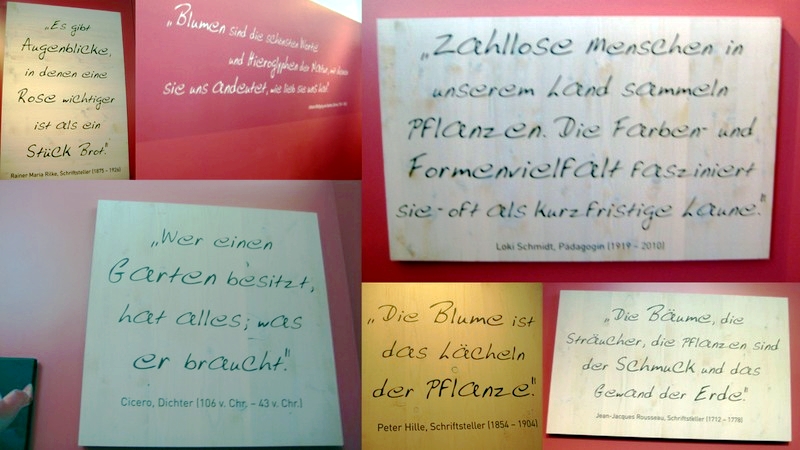 „Es gibt
Augenblicke,
in denen eine
Rose wichtiger
ist als ein
Stück Brot."
Rainer Maria Rilke, Schriftsteller (1875 - 1926)
„Blumen sind die schönsten Worte
und Hieroglyphen der Natur, mit denen
sie uns andeutet, wie lieb sie uns hat."
„Zahllose Menschen in
unserem Land sammeln
Pflanzen. Die Farben- und
Formenvielfalt fasziniert
sie - oft als kurzfristige Laune."
Loki Schmidt, Pädagogin (1919 - 2010)
„Wer einen
Garten besitzt,
hat alles; was
er braucht."
Cicero, Dichter (106 v. Chr. - 43 v. Chr.)
„Die Blume ist
das Lächeln
der Pflanze."
Peter Hille, Schriftsteller (1854 - 1904)
„Die Bäume, die
Sträucher, die Pflanzen sind
der Schmuck und das
Gewand der Erde."
Jean-Jacques Rousseau, Schriftsteller (1712 - 1778)